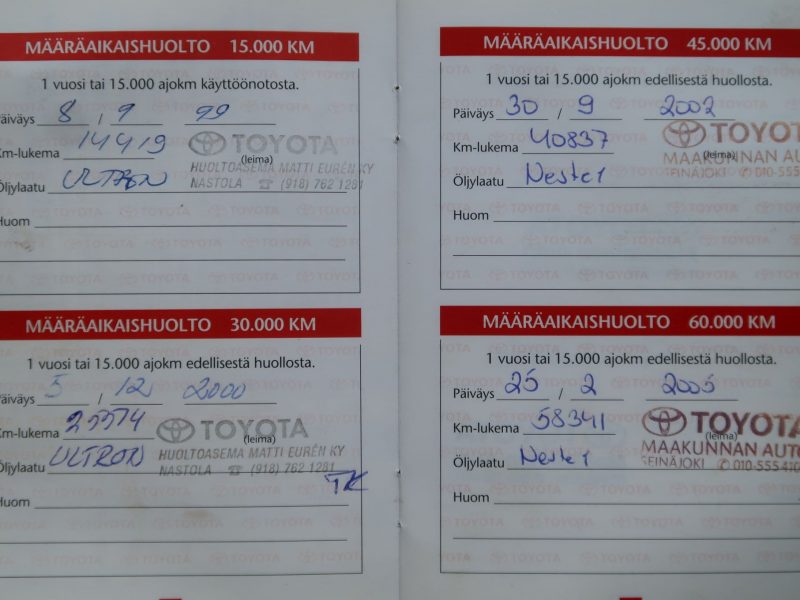 MÄÄRÄAIKAISHUOLTO 15.000 KM
1 vuosi tai 15.000 ajokm käyttöönotosta.
Päiväys 8 / 9 99
Km-lukema 14419
TOYOTA
(leima)
HUOLTOASEMA MATTI EURÉN KY
NASTOLA ☎ (918) 762 1281
Öljylaatu ULTRON
Huom
MÄÄRÄAIKAISHUOLTO 30.000 KM
1 vuosi tai 15.000 ajokm edellisestä huollosta.
Päiväys 5 / 12 2000
Km-lukema
TOYOTA
(leima)
HUOLTOASEMA MATTI EURÉN KY
NASTOLA ☎ (918) 762 1281
Öljylaatu ULTRON
TK
Huom
MÄÄRÄAIKAISHUOLTO 45.000 KM
1 vuosi tai 15.000 ajokm edellisestä huollosta.
Päiväys 30 / 9 2002
Km-lukema 40837
TOYOTA
(leima)
MAAKUNNAN AUTO
SEINÄJOKI ✆ 010-555
Öljylaatu Neste 1
Huom
MÄÄRÄAIKAISHUOLTO 60.000 KM
1 vuosi tai 15.000 ajokm edellisestä huollosta.
Päiväys 25 / 2 2005
Km-lukema 58341
TOYOTA
(leima)
MAAKUNNAN AUTO
SEINÄJOKI ✆ 010-555410
Öljylaatu Neste 1
Huom